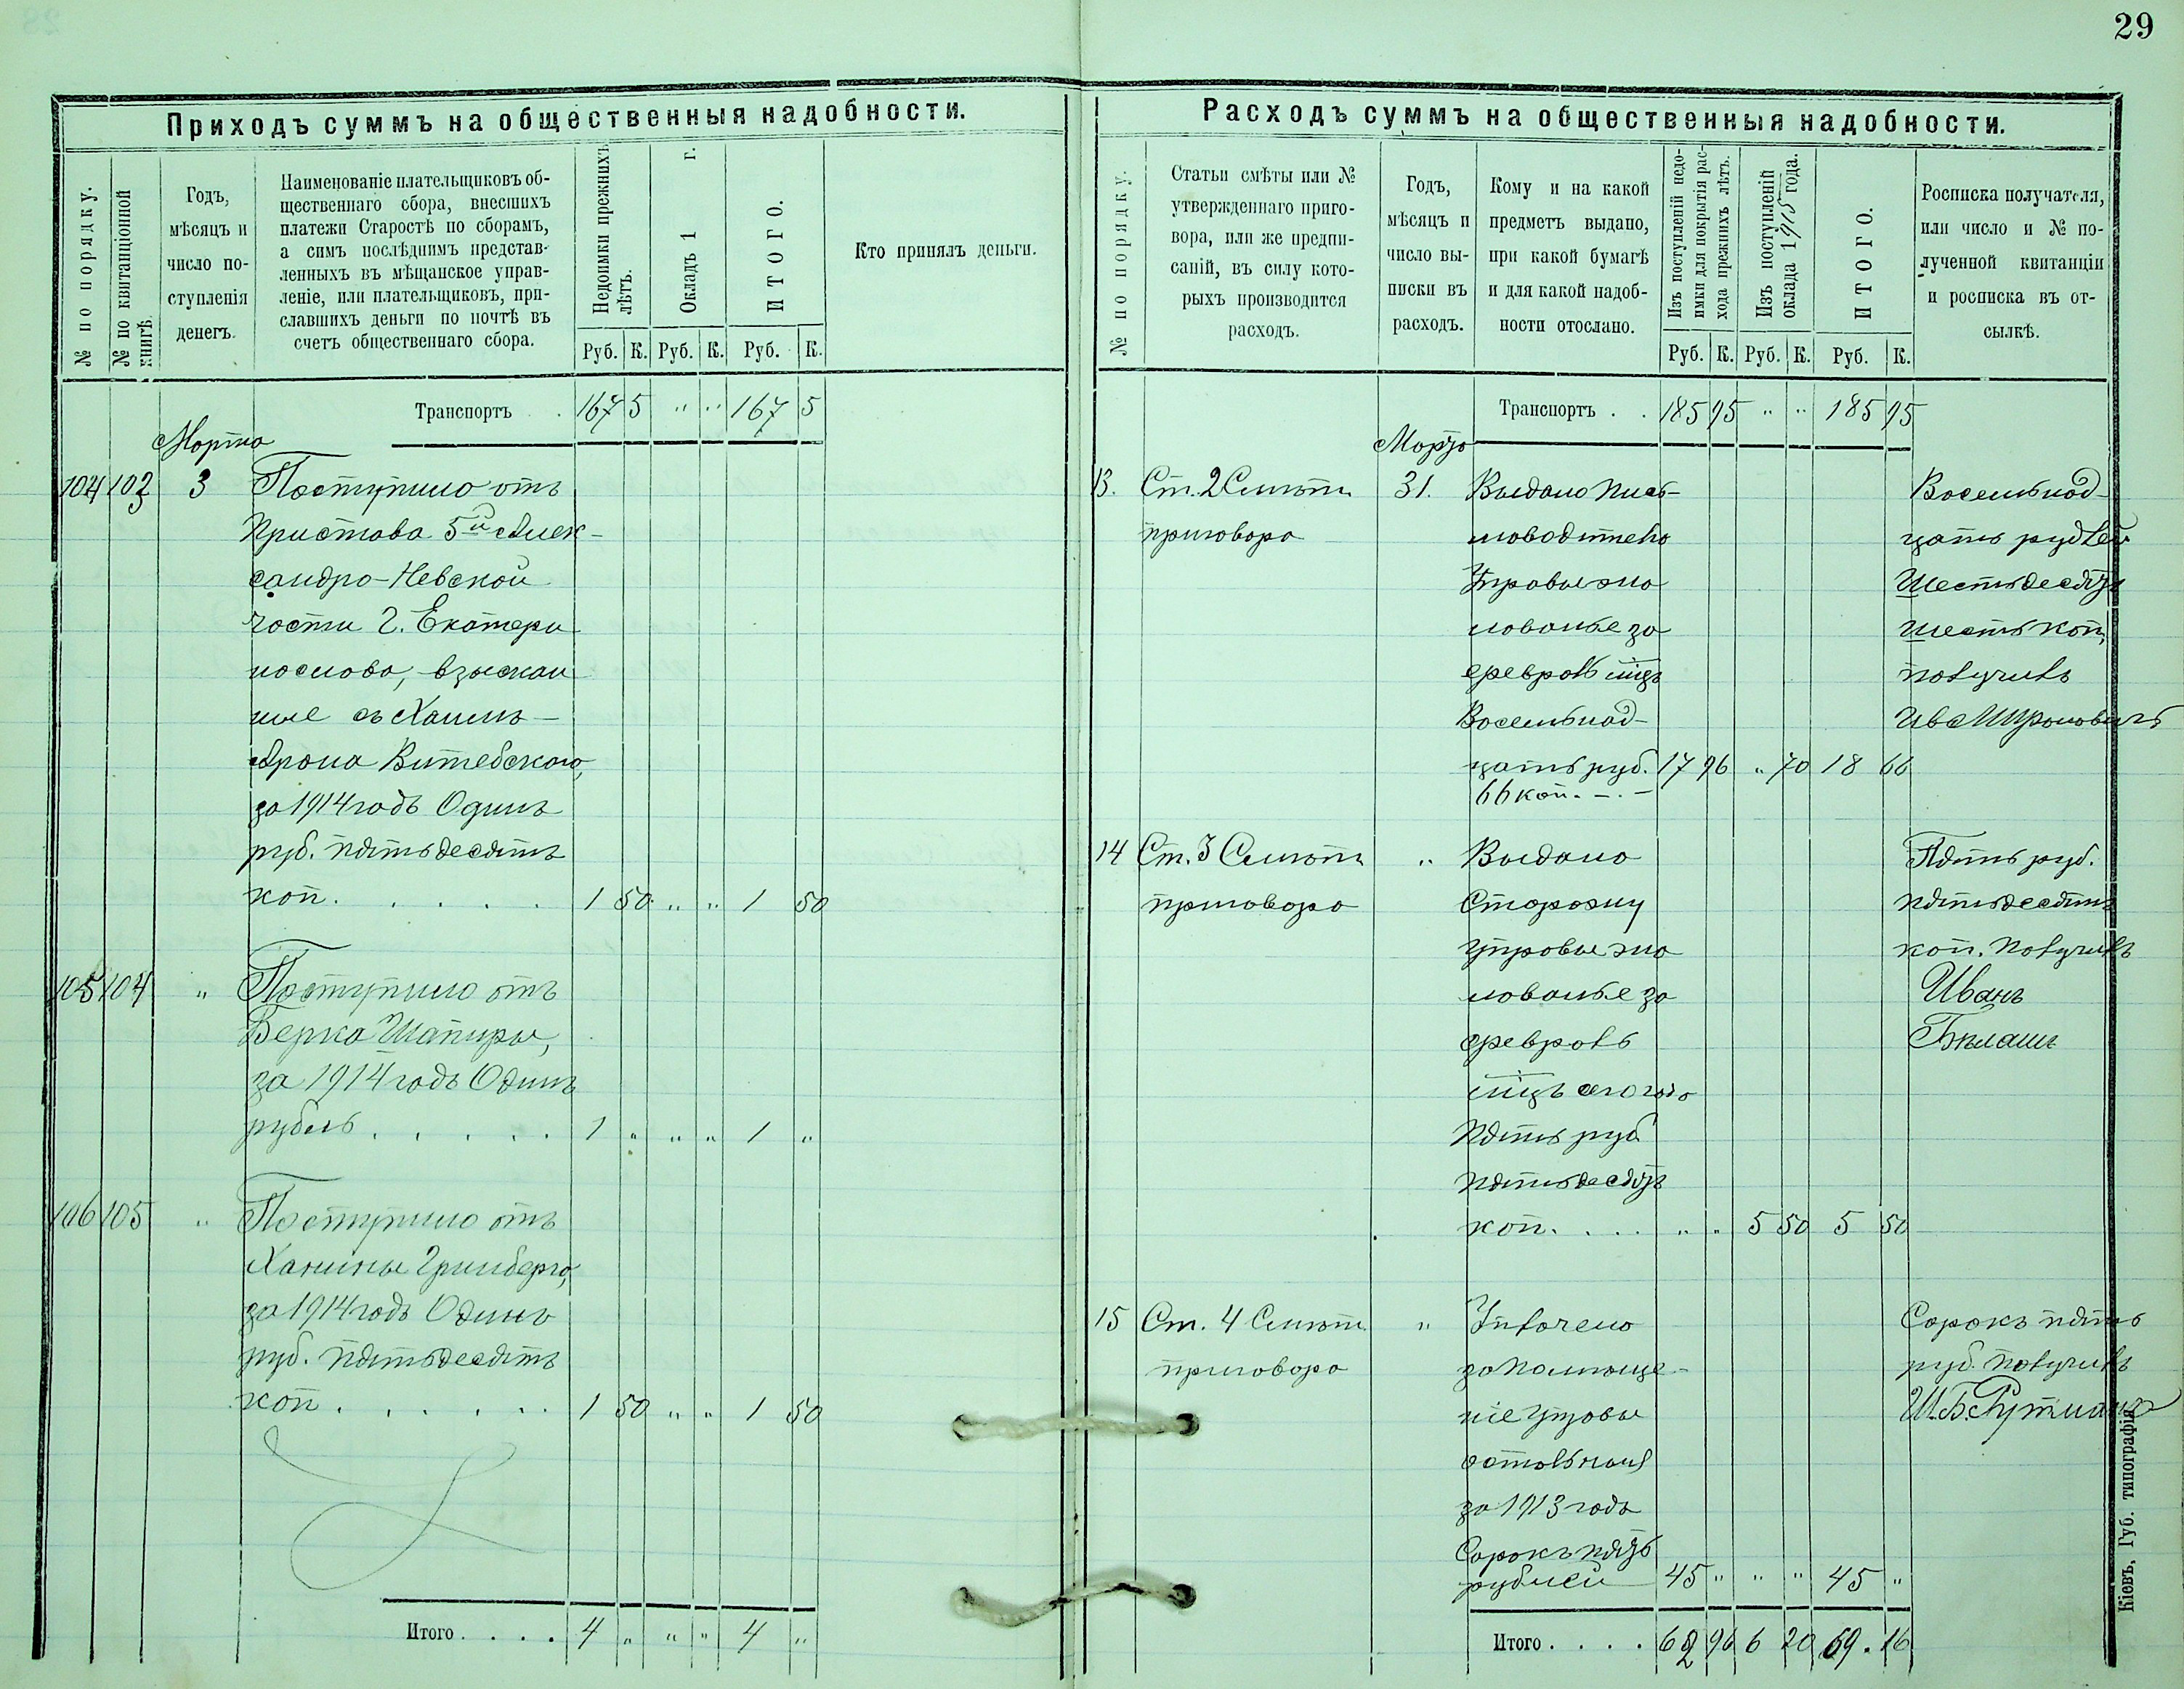 29
Приходъ суммъ на общественныя надобности.
№ по порядку.
№ по квитанціонной книгѣ.
Годъ,
мѣсяцъ и
число по-
ступленія
денегъ.
Наименованіе плательщиковъ об-
щественнаго сбора, внесшихъ
платежи Старостѣ по сборамъ,
а симъ послѣднимъ представ-
ленныхъ въ мѣщанское управ-
леніе, или плательщиковъ, при-
славшихъ деньги по почтѣ въ
счетъ общественнаго сбора.
Недоимки прежнихъ
лѣтъ.
Окладъ 1 г.
ИТОГО.
Кто принялъ деньги.
Руб. К. Руб. К. Руб. К.
Транспортъ . 167 5 " " 167 5
Марта
104 103 3 Поступило отъ
Пристава 5й Алек-
сандро-Невской
части г. Екатери
нослава, взыскан
ные съ Хаимъ-
Арона Витебскаго,
за 1914 годъ Одинъ
руб. пятьдесятъ
коп. . . . . . 1 50 " " 1 50
105 104 " Поступило отъ
Берка Шапиры,
за 1914 годъ Одинъ
рубль . . . . . 1 " " " 1 "
106 105 " Поступило отъ
Ханины Гринберга,
за 1914 годъ Одинъ
руб. пятьдесятъ
коп . . . . . . 1 50 " " 1 50
Итого . . . . 4 " " " 4 "
Расходъ суммъ на общественныя надобности.
№ по порядку.
Статьи смѣты или №
утвержденнаго приго-
вора, или же предпи-
саній, въ силу кото-
рыхъ производится
расходъ.
Годъ,
мѣсяцъ и
число вы-
писки въ
расходъ.
Кому и на какой
предметъ выдано,
при какой бумагѣ
и для какой надоб-
ности отослано.
Изъ поступленій недо-
имки для покрытія рас-
хода прежнихъ лѣтъ.
Изъ поступленій
оклада 1915 года.
ИТОГО.
Росписка получателя,
или число и № по-
лученной квитанціи
и росписка въ от-
сылкѣ.
Руб. К. Руб. К. Руб. К.
Транспортъ . . 185 95 " " 185 95
Марта
13. Ст. 2 Смѣты 31. Выдано пись-
приговора
моводителю
Управы жа
лованье за
февраль мцъ
Восемьнад-
цать руб. 17 96 " 70 18 66
66 коп. - . -
Восемьнад-
цать рублей
Шестьдесятъ
шесть коп,
получилъ
Ив Мироновичъ
14 Ст. 3 Смѣты " Выдано
приговора
Сторожу
управы жа
лованье за
февраль
мцъ сего года
Пять руб
пятьдесятъ
коп. . . . " " 5 50 5 50
Пять руб.
пятьдесятъ
коп. Получилъ
Иванъ
Бѣлашъ
15 Ст. 4 Смѣты " Уплачено
приговора
за помѣще-
ніе Управы
остальныя
за 1913 годъ
Сорокъ пять
рублей 45 " " " 45 "
Сорокъ пять
руб. Получилъ
Ш. Б. Рутманъ
Итого . . . . 62 96 6 20 69 . 16
Кіевъ, Губ. типографія.